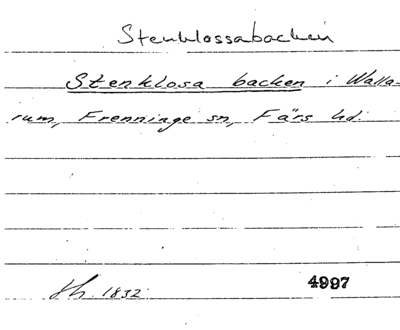 Stenklossabacken
Stenklosa backen i Walla-
rum, Frenninge sn, Färs hd.
Sh. 1832. 4997